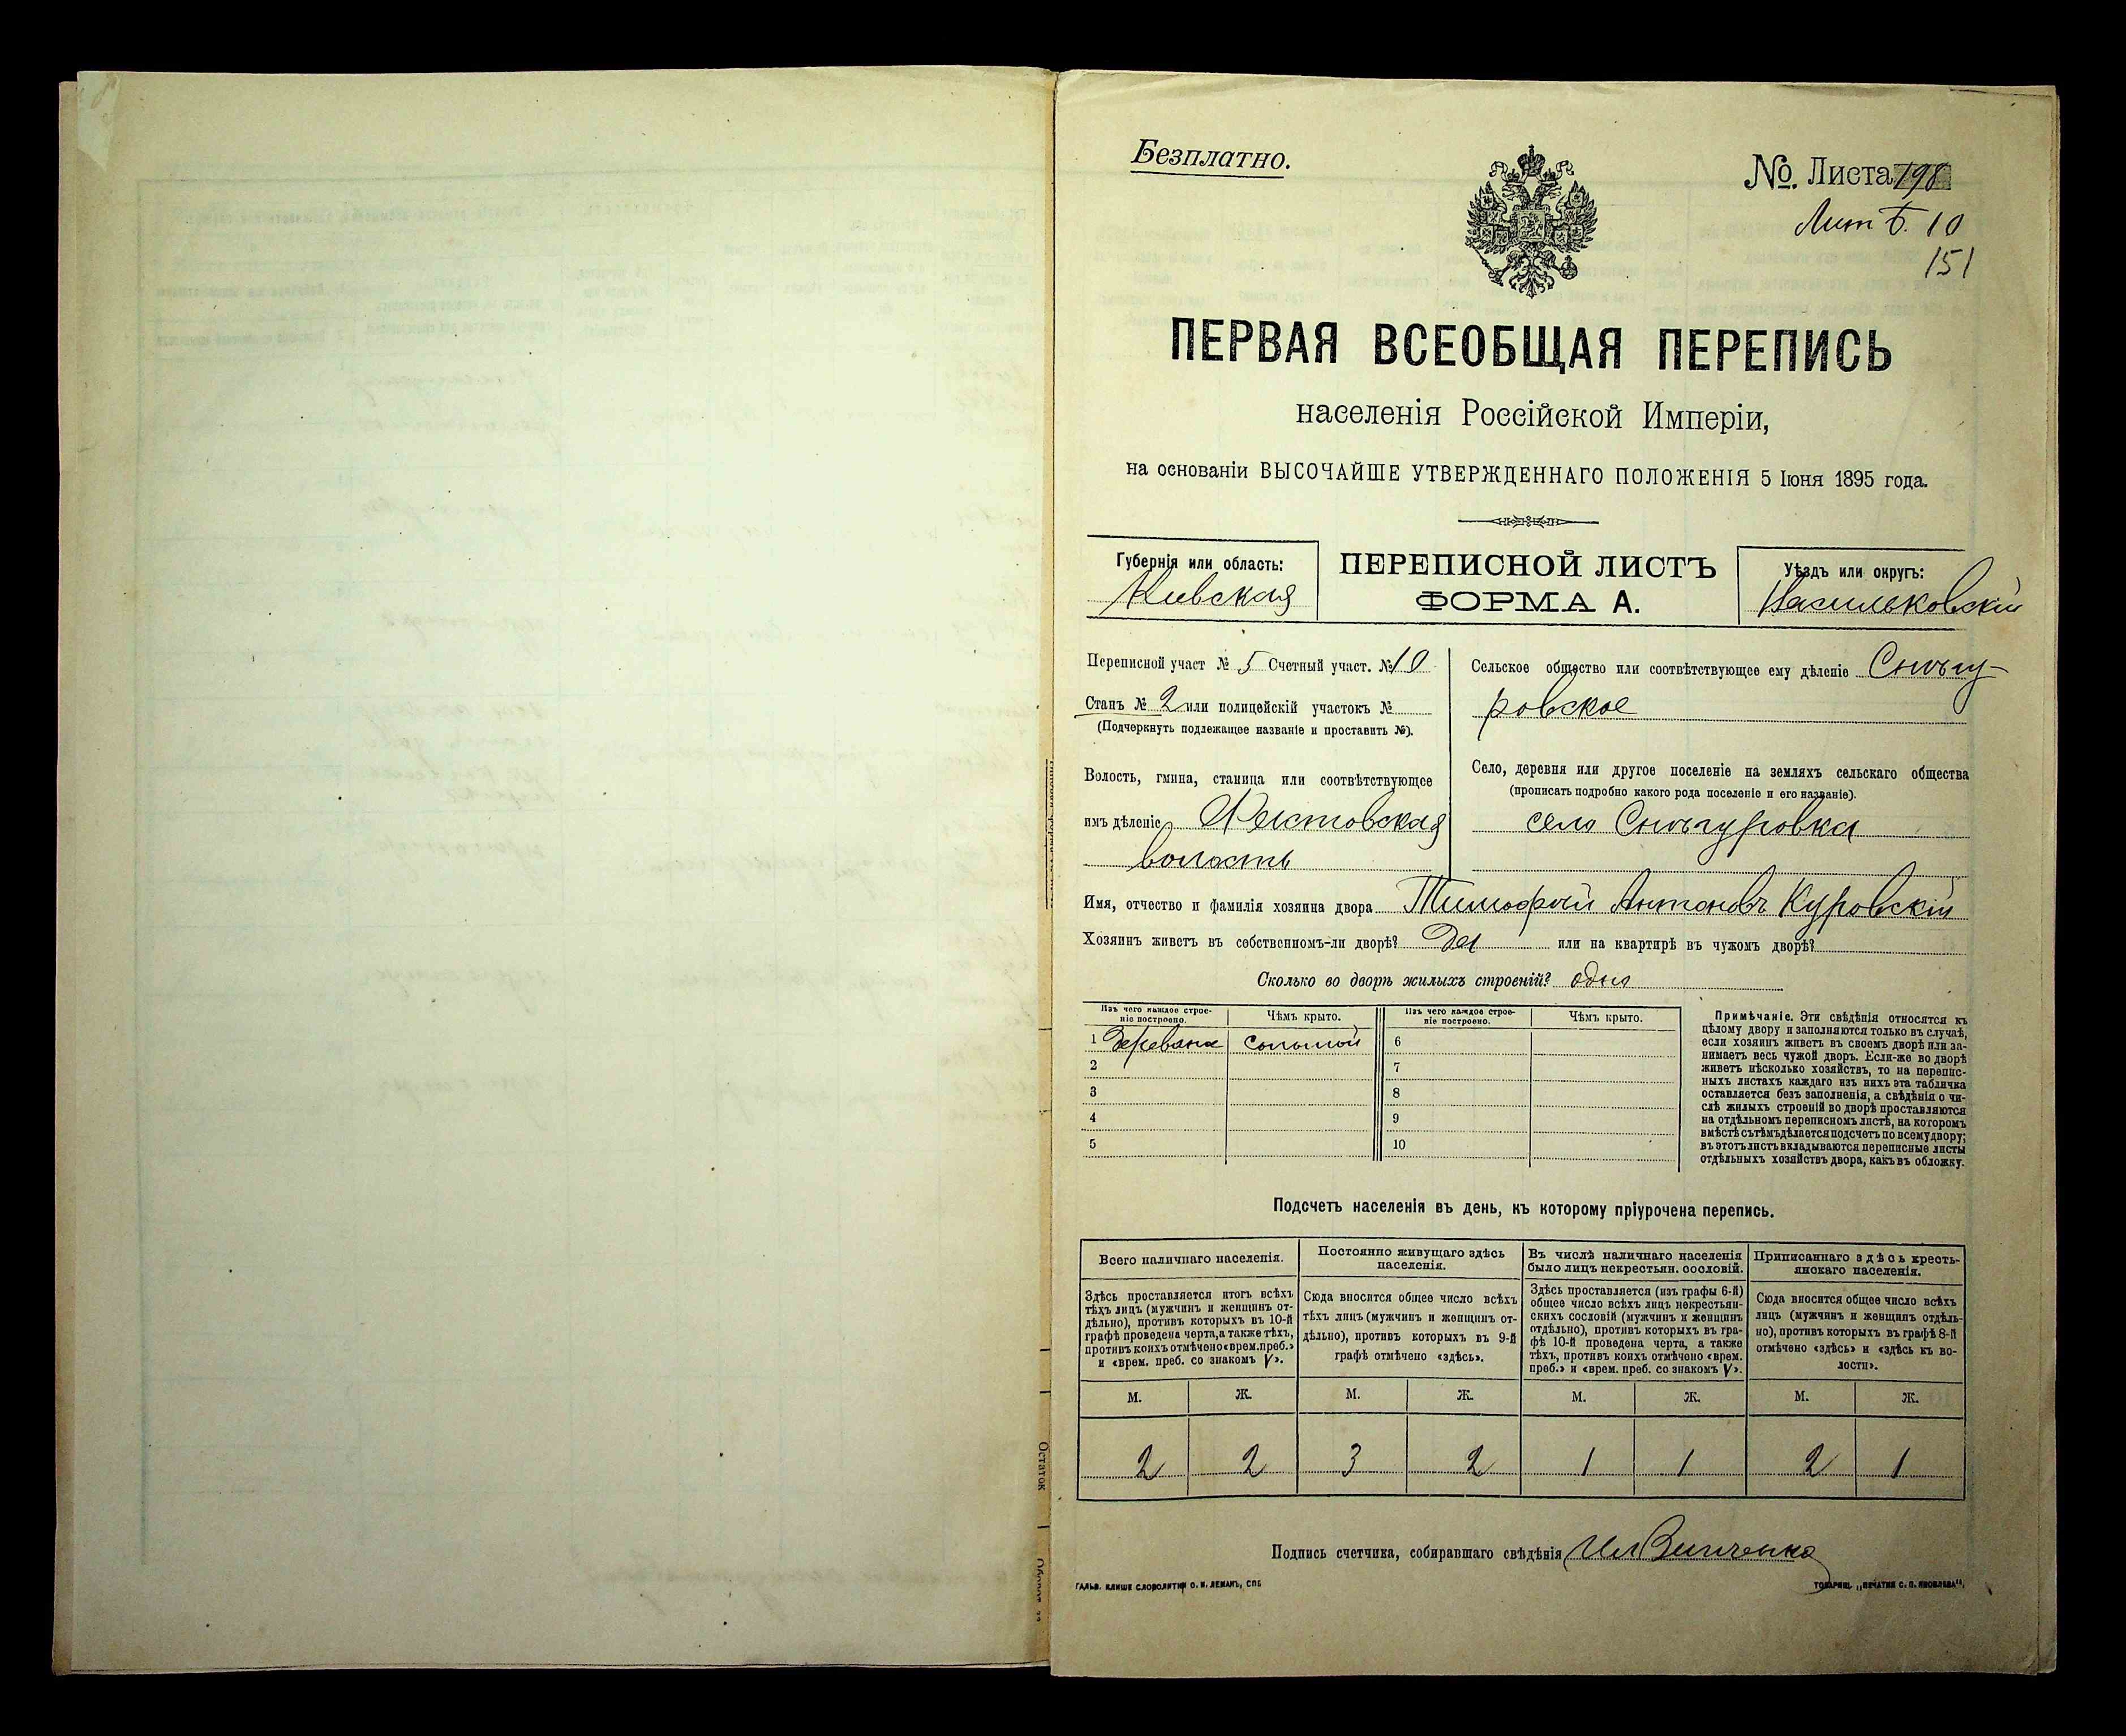 Безплатно.
№. Листа 198
Лит Б. 10
151
ПЕРВАЯ ВСЕОБЩАЯ ПЕРЕПИСЬ
населенія Россійской Имперіи,
на основаніи ВЫСОЧАЙШЕ УТВЕРЖДЕННАГО ПОЛОЖЕНІЯ 5 Іюня 1895 года.
Губернія или область:
Киевская
ПЕРЕПИСНОЙ ЛИСТЪ
ФОРМА А.
Уѣздъ или округъ:
Васильковскій
Переписной участ № 5 Счетный участ. № 10
Станъ № 2 или полицейскій участокъ №
(Подчеркнуть подлежащее названіе и проставить №).
Волость, гмина, станица или соотвѣтствующее
имъ дѣленіе Фастовская
волость
Сельское общество или соотвѣтствующее ему дѣленіе Снѣгу-
ровское
Село, деревня или другое поселеніе на земляхъ сельскаго общества
(прописать подробно какого рода поселеніе и его названіе).
село Снѣгуровка
Имя, отчество и фамилія хозяина двора Тимофей Антоновъ Куровскій
Хозяинъ живетъ въ собственномъ-ли дворѣ? Да или на квартирѣ въ чужомъ дворѣ?
Сколько во дворѣ жилыхъ строеній? одно
Изъ чего каждое строе-
ніе построено.
Чѣмъ крыто.
Изъ чего каждое строе-
ніе построено.
Чѣмъ крыто.
1 соломой 6
2 7
3 8
4 9
5 10
Примѣчаніе. Эти свѣдѣнія относятся къ
цѣлому двору и заполняются только въ случаѣ,
если хозяинъ живетъ въ своемъ дворѣ или за-
нимаетъ весь чужой дворъ. Если-же во дворѣ
живетъ нѣсколько хозяйствъ, то на перепис-
ныхъ листахъ каждаго изъ нихъ эта табличка
оставляется безъ заполненія, а свѣдѣнія о чи-
слѣ жилыхъ строеній во дворѣ проставляются
на отдѣльномъ переписномъ листѣ, на которомъ
вмѣстѣ съ тѣмъ дѣлается подсчетъ по всему двору;
въ этотъ листъ вкладываются переписные листы
отдѣльныхъ хозяйствъ двора, какъ въ обложку.
Подсчетъ населенія въ день, къ которому пріурочена перепись.
Всего наличнаго населенія.
Здѣсь проставляется итогъ всѣхъ
тѣхъ лицъ (мужчинъ и женщинъ от-
дѣльно), противъ которыхъ въ 10-й
графѣ проведена черта, а также тѣхъ,
противъ коихъ отмѣчено «врем. преб.»
и «врем. преб. со знакомъ V».
Постоянно живущаго здѣсь
населенія.
Сюда вносится общее число всѣхъ
тѣхъ лицъ (мужчинъ и женщинъ от-
дѣльно), противъ которыхъ въ 9-й
графѣ отмѣчено «здѣсь».
Въ числѣ наличнаго населенія
было лицъ некрестьян. сословій.
Здѣсь проставляется (изъ графы 6-й)
общее число всѣхъ лицъ некрестьян-
скихъ сословій (мужчинъ и женщинъ
отдѣльно), противъ которыхъ въ гра-
фѣ 10-й проведена черта, а также
тѣхъ, противъ коихъ отмѣчено «врем.
преб.» и «врем. преб. со знакомъ V».
Приписаннаго здѣсь кресть-
янскаго населенія.
Сюда вносится общее число всѣхъ
лицъ (мужчинъ и женщинъ отдѣль-
но), противъ которыхъ въ графѣ 8-й
отмѣчено «здѣсь» и «здѣсь къ во-
лости».
М. Ж. М. Ж. М. Ж. М. Ж.
2 2 3 2 1 1 2 1
Подпись счетчика, собиравшаго свѣдѣнія
ГАЛЬВ. КЛИШЕ СЛОВОЛИТНИ О. И. ЛЕМАНЪ, СПБ
ТОВАРИЩ. „ПЕЧАТНЯ С. П. ЯКОВЛЕВА“,
Остаток